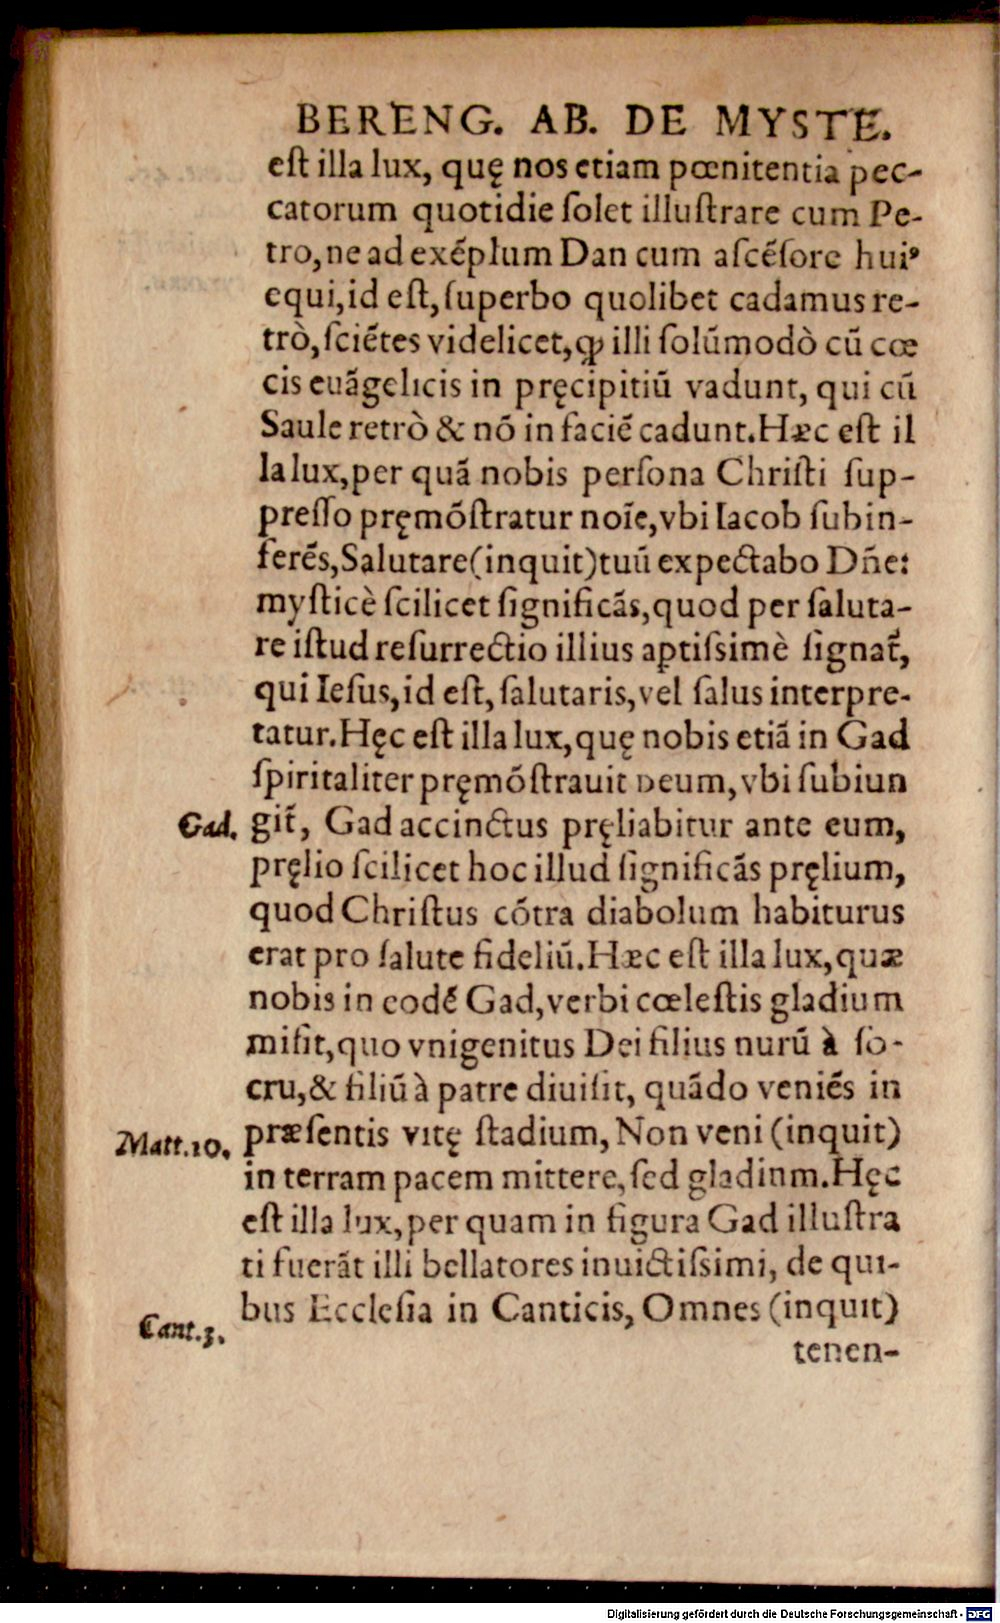 BERENG. AB. DE MYSTE.
eſt illa lux, quę nos etiam pœnitentia pec-
catorum quotidie ſolet illuſtrare cum Pe-
tro, ne ad exẽplum Dan cum aſcẽſore huiꝰ
equi, id eſt, ſuperbo quolibet cadamus re-
trò, ſciẽtes videlicet, ꝙ illi ſolũmodò cũ cœ
cis euãgelicis in pręcipitiũ vadunt, qui cũ
Saule retrò & nõ in faciẽ cadunt. Hæc eſt il
la lux, per quã nobis perſona Chriſti ſup-
preſſo pręmõſtratur noĩe, vbi Iacob ſubin-
ferẽs, Salutare (inquit) tuũ expectabo Dñe:
myſticè ſcilicet ſignificãs, quod per ſaluta-
re iſtud reſurrectio illius aptiſsimè ſignat̃,
qui Ieſus, id eſt, ſalutaris, vel ſalus interpre-
tatur. Hęc eſt illa lux, quę nobis etiã in Gad
ſpiritaliter pręmõſtrauit Deum, vbi ſubiun
Gad. git̃, Gad accinctus pręliabitur ante eum,
pręlio ſcilicet hoc illud ſignificãs pręlium,
quod Chriſtus cõtra diabolum habiturus
erat pro ſalute fideliũ. Hæc eſt illa lux, quæ
nobis in eodẽ Gad, verbi cœleſtis gladium
miſit, quo vnigenitus Dei filius nurũ à ſo-
cru, & filiũ à patre diuiſit, quãdo veniẽs in
Matt.10. præſentis vitę ſtadium, Non veni (inquit)
in terram pacem mittere, ſed gladium. Hęc
eſt illa lux, per quam in figura Gad illuſtra
ti fuerãt illi bellatores inuictiſsimi, de qui-
Cant.3. bus Eccleſia in Canticis, Omnes (inquit)
tenen-
Digitalisierung gefördert durch die Deutsche Forschungsgemeinschaft - DFG